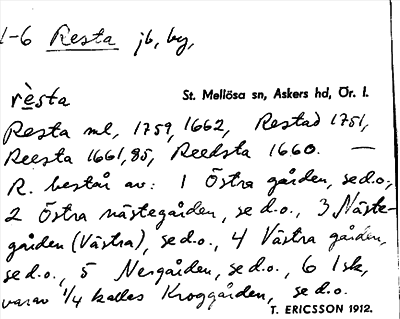 1-6 Resta jb, by,
rèsta St. Mellösa sn, Askers hd, Ör. l.
Resta ml, 1759, 1662, Restad 1751,
Reesta 1661, 85, Reedsta 1660. —
R. består av: 1 Östra gården, se d.o.,
2 Östra nästegården, se d.o., 3 Näste-
gården (Västra), se d.o., 4 Västra gården,
se d.o., 5 Nergården, se d.o., 6 1 sk,
varav 1/4 kallas Kroggården, se d.o.
T. ERICSSON 1912.